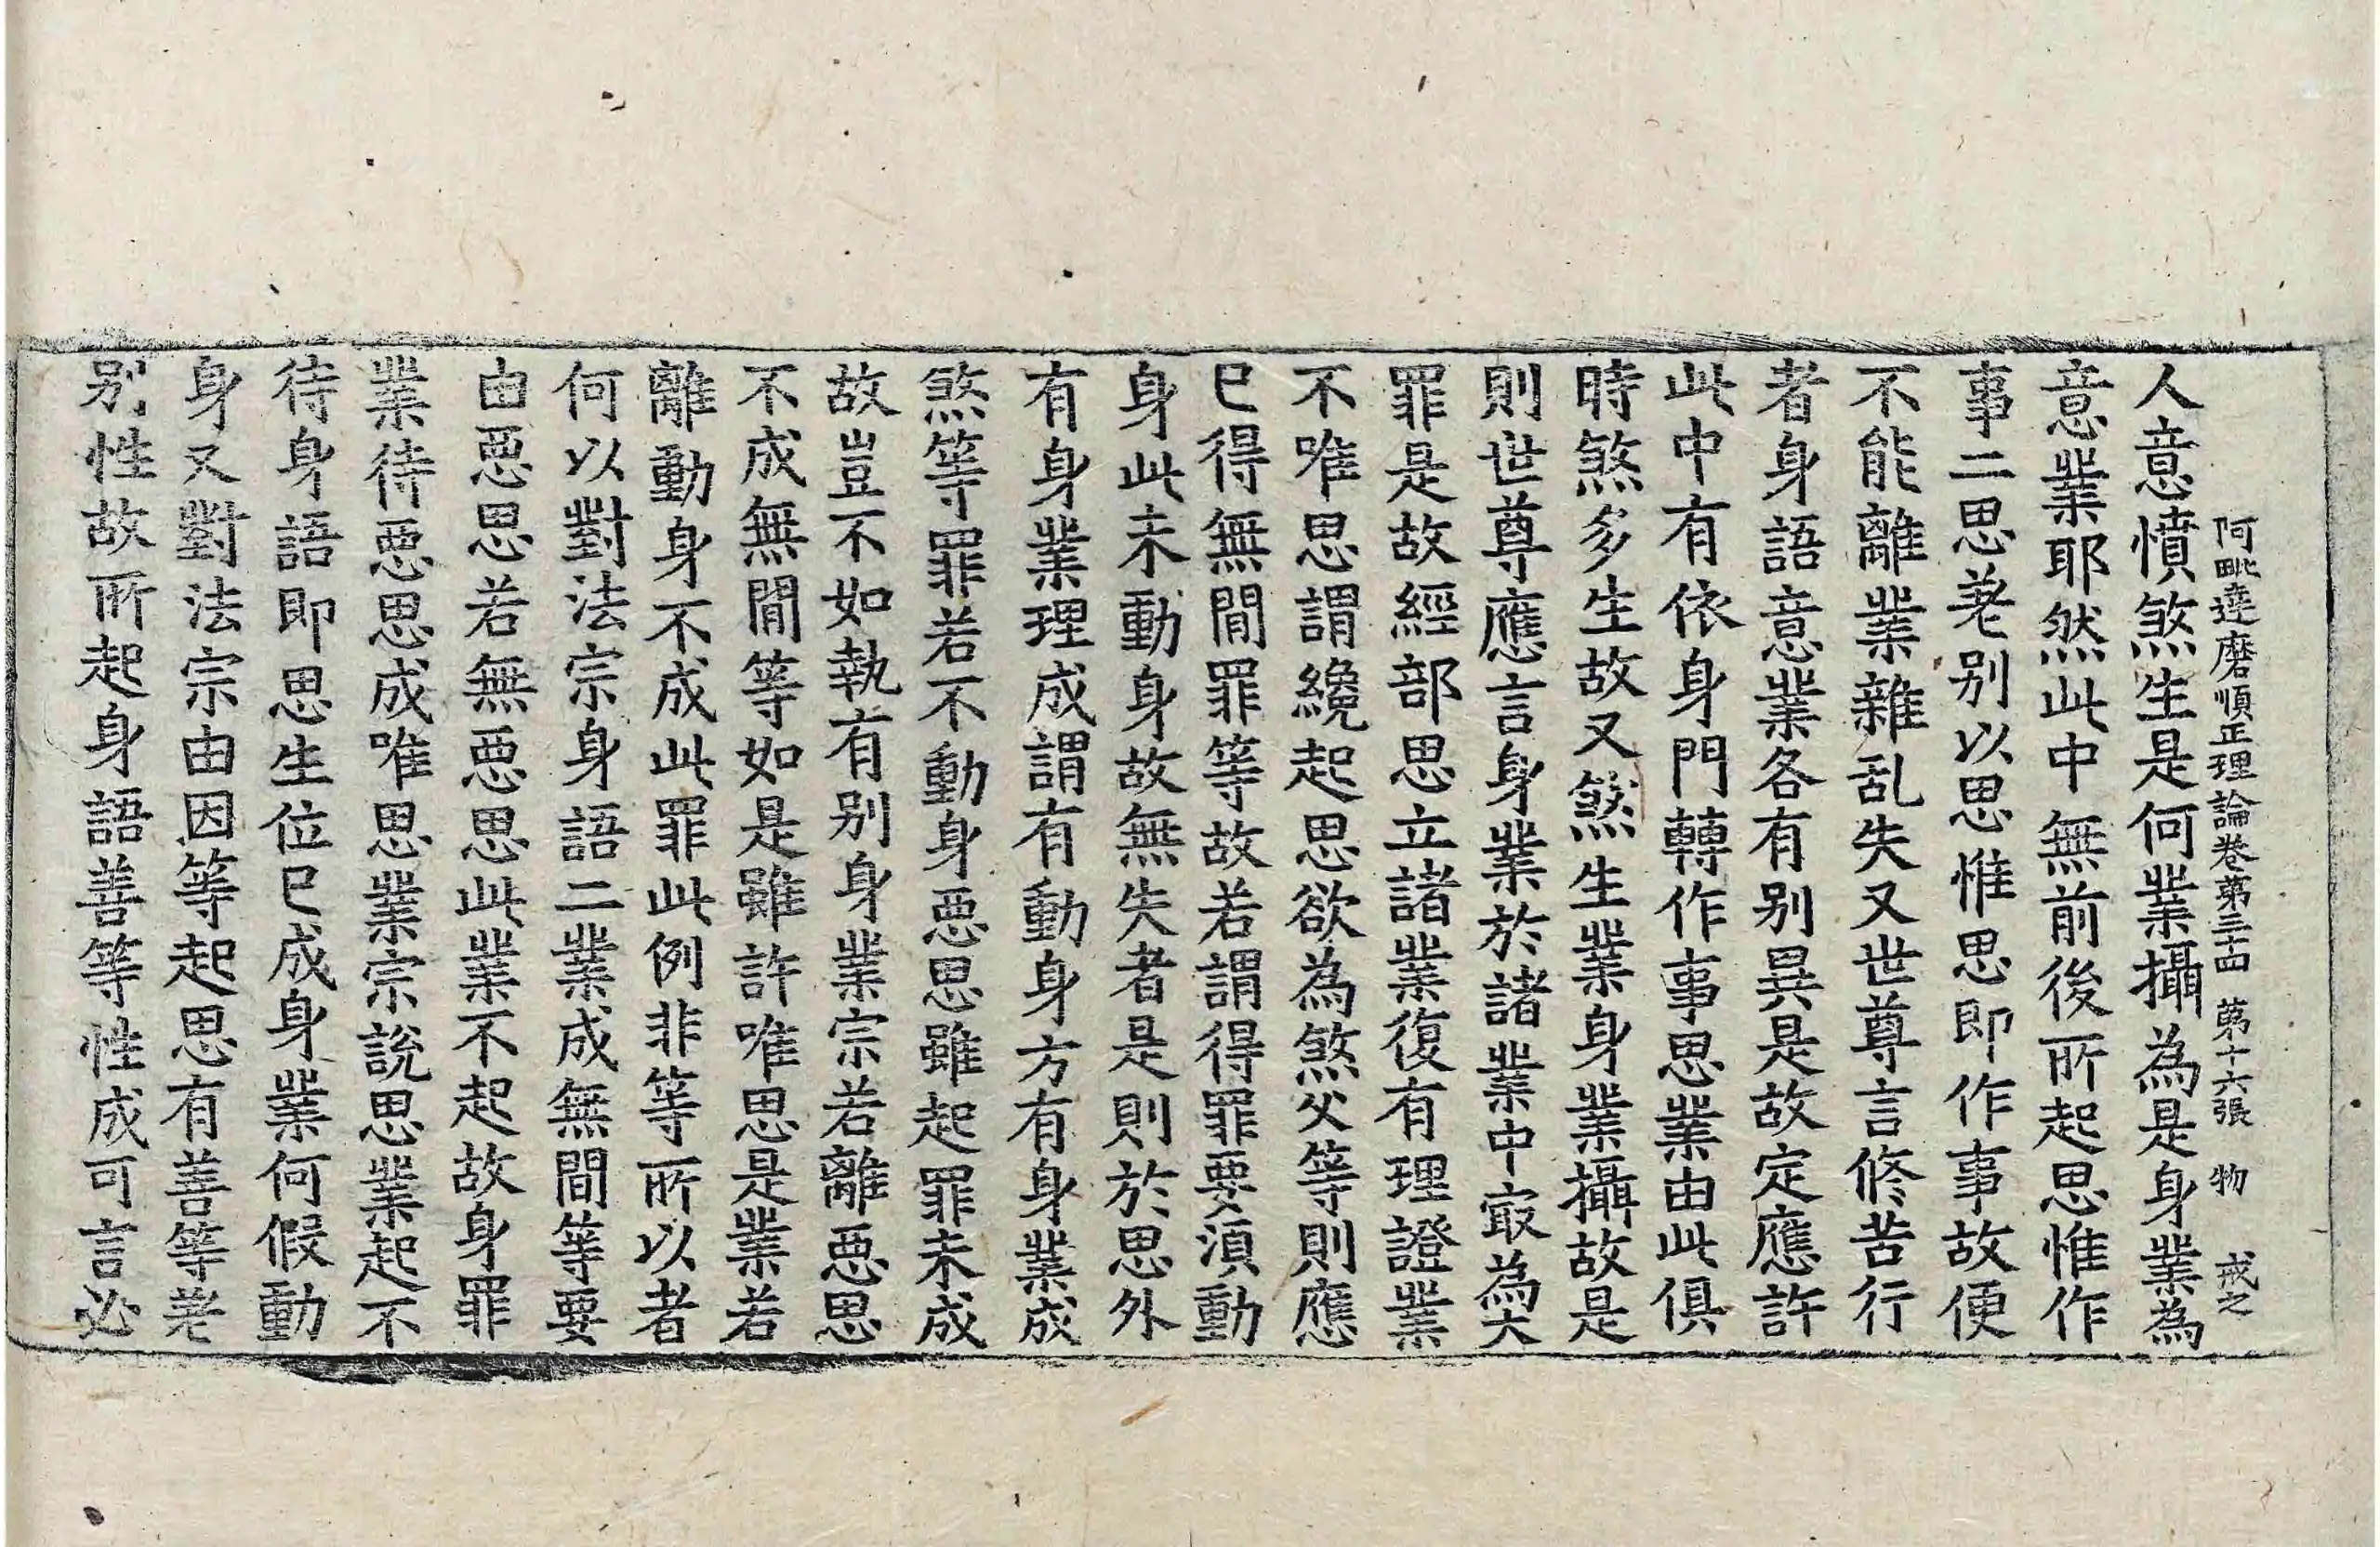 阿毗達磨順正理論卷第三十四 第十六張 物 戒之
人意憤煞生是何業攝為是身業為
意業耶然此中無前後所起思惟作
事二思差別以思惟思即作事故便
不能離業雜乱失又世尊言修苦行
者身語意業各有別異是故定應許
此中有依身門轉作事思業由此俱
時煞多生故又煞生業身業攝故是
則世尊應言身業於諸業中冣為大
罪是故經部思立諸業復有理證業
不唯思謂纔起思欲為煞父等則應
已得無間罪等故若謂得罪要湏動
身此未動身故無失者是則於思外
有身業理成謂有動身方有身業成
煞等罪若不動身惡思雖起罪未成
故豈不如執有別身業宗若離惡思
不成無間等如是雖許唯思是業若
離動身不成此罪此例非等所以者
何以對法宗身語二業成無間等要
由惡思若無惡思此業不起故身罪
業待惡思成唯思業宗說思業起不
待身語即思生位已成身業何假動
身又對法宗由因等起思有善等差
別性故所起身語善等性成可言必